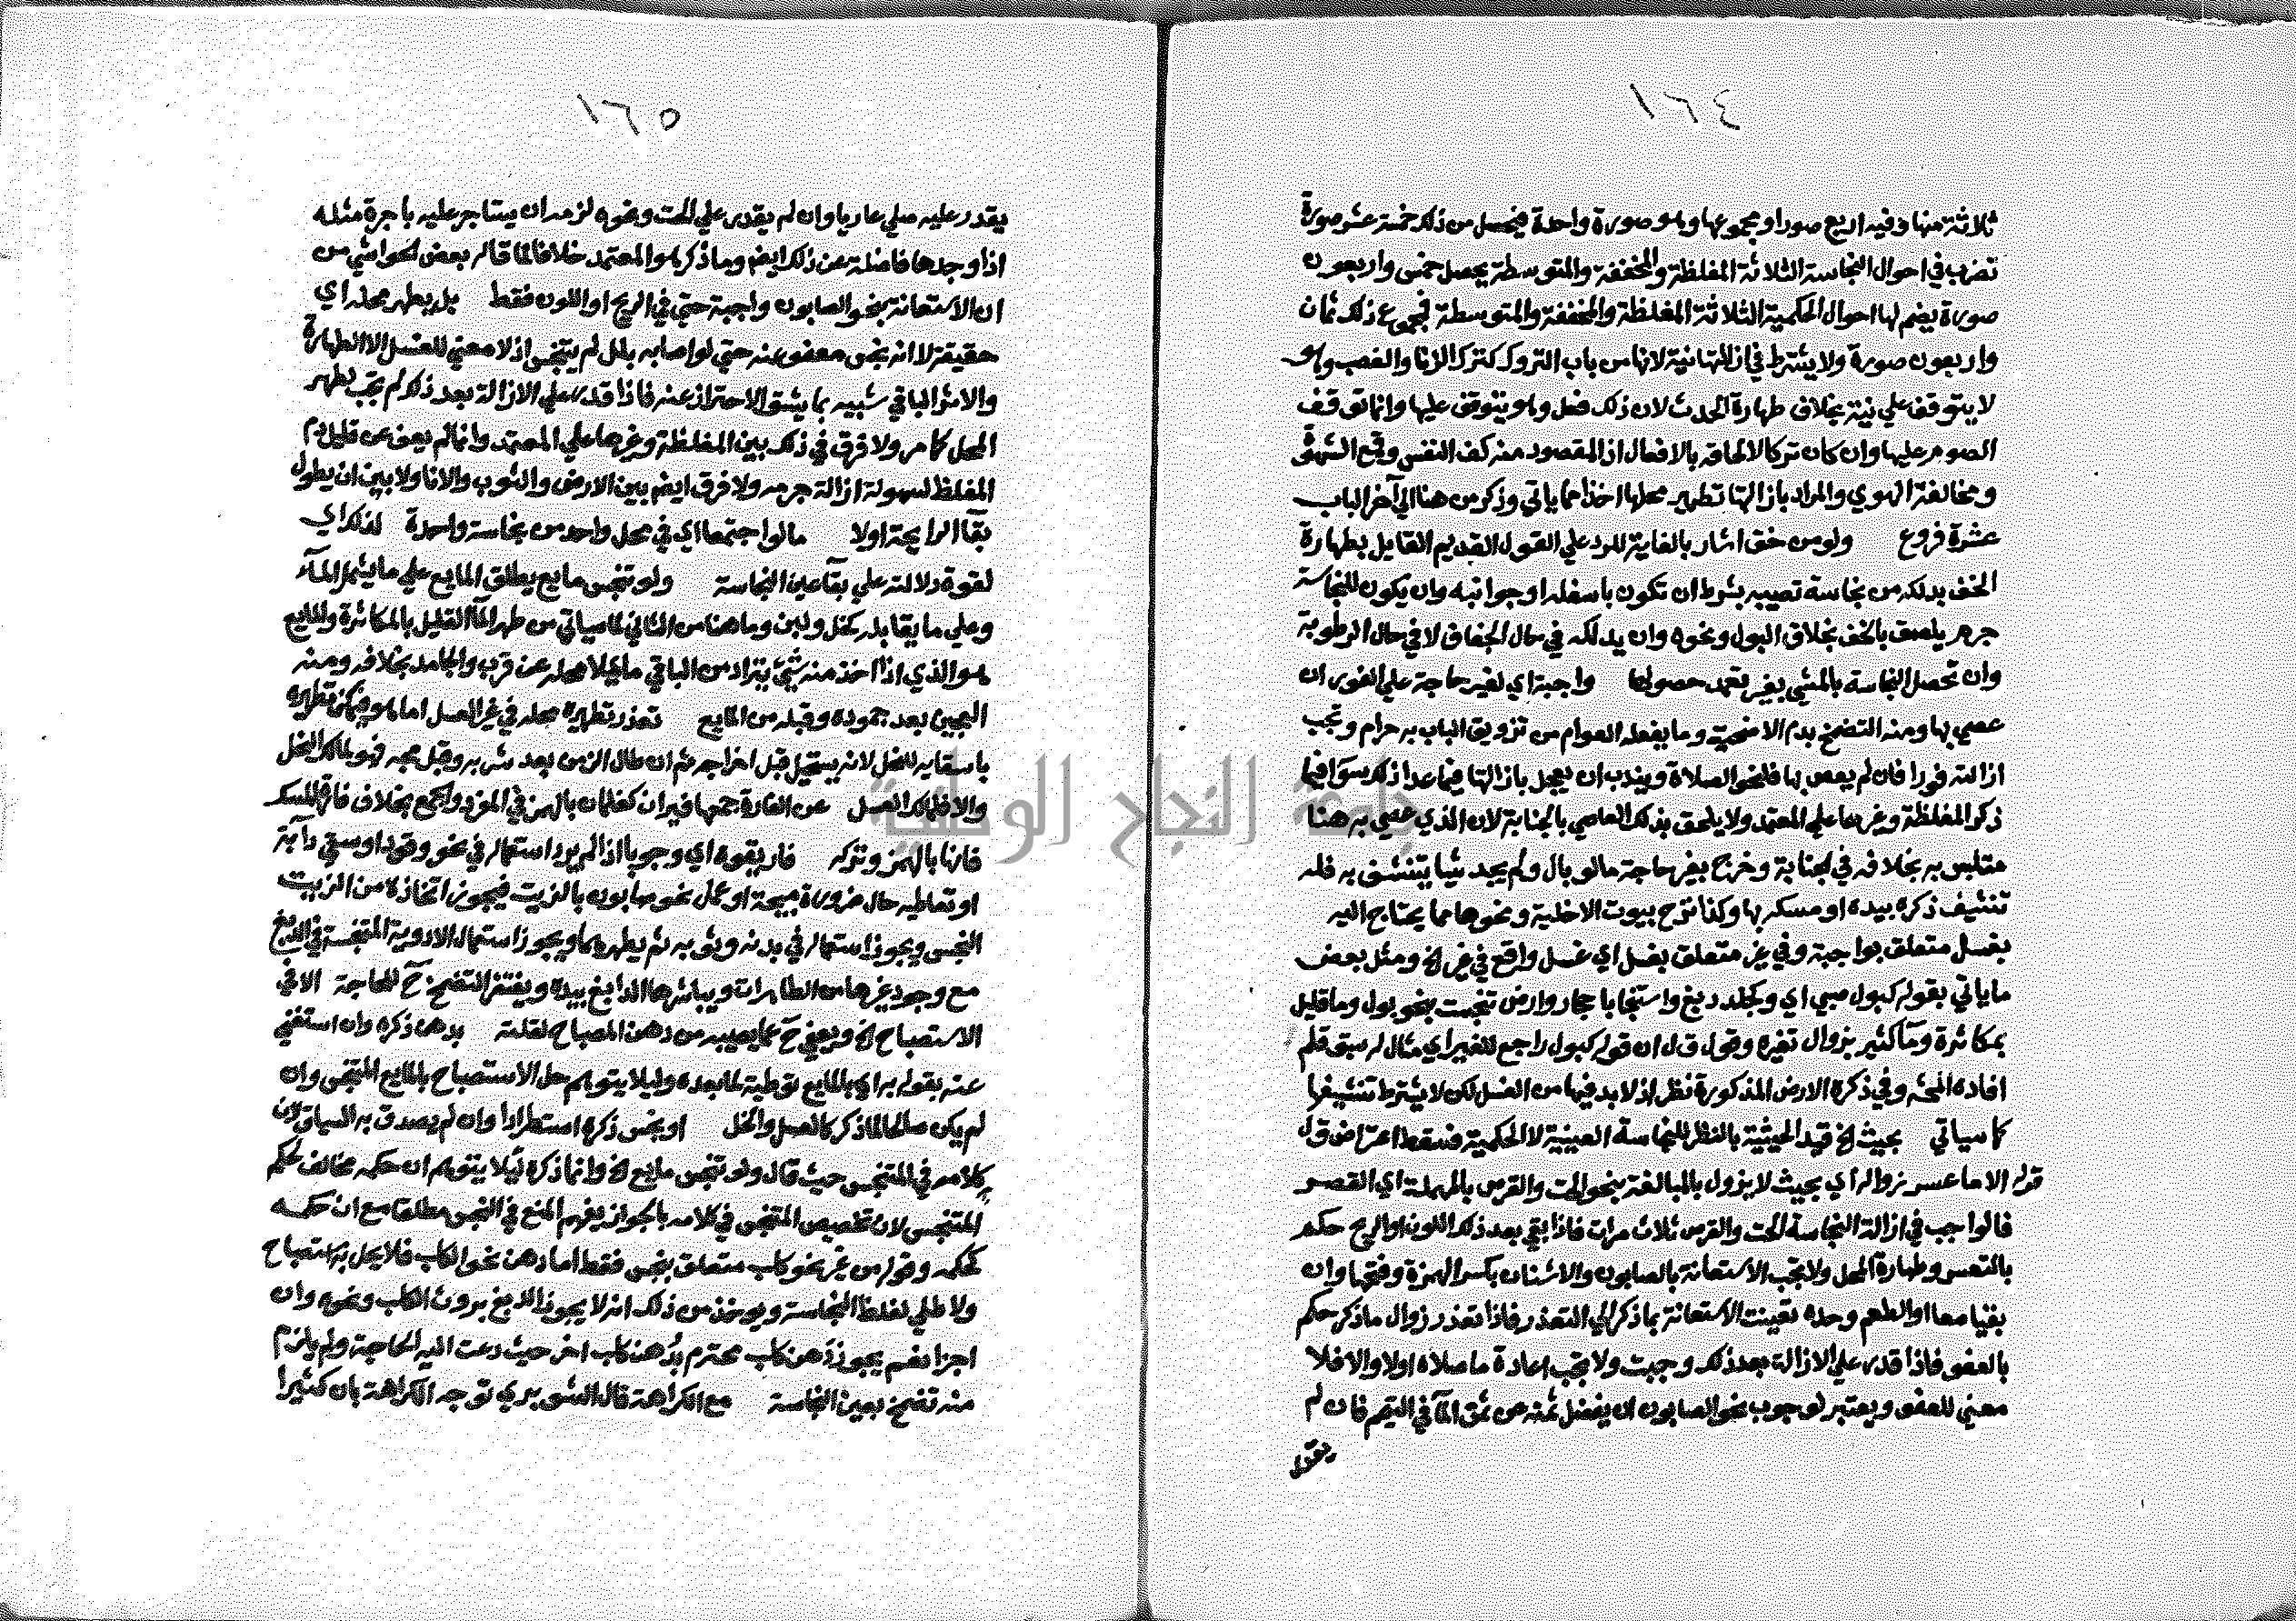 ١٦٤
ثلاثة منها وفيه اربع صور او مجموعها وهو صورة واحدة فيحصل من ذلك خمسة عشر صورة
تضرب في احوال النجاسة الثلاثة المغلظة والمخففة والمتوسطة يحصل خمس واربعون
صورة يضم لها احوال الحكمية الثلاثة المغلظة والمخففة والمتوسطة فمجموع ذلك ثمان
واربعون صورة ولا يشترط في ازالتها نية لانها من باب التروك كترك الزنا والغصب وهو
لا يتوقف علي نية بخلاف طهارة الحدث لان ذلك فعل وهو يتوقف عليها وانما توقف
الصوم عليها وان كان تركا لالحاقه بالافعال اذ المقصود منه كف النفس وقمع الشهوة
ومخالفة الهوي والمراد بازالتها تطهير محلها اخذا مما ياتي وذكر من هنا الي آخر الباب
عشرة فروع ولو من خف اشار بالغاية للرد علي القول القديم القايل بطهارة
الخف بدلكه من نجاسة تصيبه بشرط ان تكون باسفله او جوانبه وان يكون للنجاسة
جرم يلصق بالخف بخلاف البول ونحوه وان يدلكه في حال الجفاف لا في حال الرطوبة
وان تحصل النجاسة بالمشي بغير تعمد حصولها واجبة اي لغير حاجة علي الفور ان
عصي بها ومنه التضمخ بدم الاضحية وما يفعله العوام من تزويق الباب به حرام وتجب
ازالته فورا فان لم يعص بها فلنحو الصلاة ويندب ان يعجل بازالتها فيما عدا ذلك سوا فيما
ذكر المغلظة وغيرها علي المعتمد ولا يلحق بذلك العاصي بالجنابة لان الذي عصي به هنا
متلبس به بخلافه في الجنابة وخرج بغير حاجة ما لو بال ولم يجد شيا يتنشف به فله
تنشيف ذكره بيده او مسكه بها وكذا نزح بيوت الاخلية ونحوها مما يحتاج اليه
بغسل متعلق بواجبة وفي غير متعلق بغسل اي غسل واقع في غير الخ ومثل بعض
ما ياتي بقوله كبول صبي اي وكجلد دبغ واستنجا باحجار وارض تنجست بنحو بول وما قليل
بمكاثرة وما كثير بزوال تغيره وقول ق ل ان قوله كبول راجع للغير اي مثال له سبق قلم
افاده المحشي وفي ذكره الارض المذكورة نظر اذ لا بد فيها من الغسل لكن لا يشترط تنشيفها
كما سياتي بحيث الخ قيد الحيثية بالنظر للنجاسة العينية لا الحكمية فسقط اعتراض ق ل
قوله الا ما عسر زواله اي بحيث لا يزول بالمبالغة بنحو الحت والقرص بالمهملة اي القصر
فالواجب في ازالة النجاسة الحت والقرص ثلاث مرات فاذا بقي بعد ذلك اللون او الريح حكم
بالتعسر وطهارة المحل ولا تجب الاستعانة بالصابون والاشنان بكسر الهمزة وفتحها وان
بقيا معا او الطعم وحده تعينت الاستعانة بما ذكر الي التعذر فاذا تعذر زوال ما ذكر حكم
بالعفو فاذا قدر علي الازالة بعد ذلك وجبت ولا تجب اعادة ما صلاه اولا والا فلا
معني للعفو ويعتبر لوجوب نحو الصابون ان يفضل ثمنه عن ثمن الما في التيمم فان لم
يقدر
١٦٥
يقدر عليه صلي عاريا وان لم يقدر علي الحت ونحوه لزمه ان يستاجر عليه باجرة مثله
اذا وجدها فاضلة عن ذلك ايضا وما ذكر هو المعتمد خلافا لما قاله بعض الحواشي من
ان الاستعانة بنحو الصابون واجبة حتي في الريح او اللون فقط بل يطهر محله اي
حقيقة لا انه نجس معفو عنه حتي لو اصابه بلل لم يتنجس اذ لا معني للغسل الا الطهارة
والاثر الباقي شبيه بما يشق الاحتراز عنه فاذا قدر علي الازالة بعد ذلك لم تجب تطهر
المحل كما مر ولا فرق في ذلك بين المغلظة وغيرها علي المعتمد وانما لم يعف عن قليل دم
المغلظ لسهولة ازالة جرمه ولا فرق ايضا بين الارض والثوب والانا ولا بين ان يطول
بقا الرايحة اولا ما لو اجتمعا اي في محل واحد من نجاسة واحدة لذلك اي
لقوة دلالته علي بقا عين النجاسة ولو تنجس مايع يطلق المايع علي ما يشمل الماء
وعلي ما يقابله كخل ولبن وما هنا من الثاني لما سياتي من طهر الما القليل بالمكاثرة والمايع
هو الذي اذا اخذ منه شي يتراد من الباقي ما يملا محله عن قرب والجامد بخلافه ومنه
العجين بعد جموده وقبله من المايع تعذر تطهيره محله في غير العسل اما هو فيمكن تطهيره
باسقايه للنحل لانه يستحيل قبل اخراجه ثم ان طال الزمن بعد شربه وقبل مجه فهو لمالك النحل
والا فلمالك العسل عن الفارة جمعها فيران كغلمان بالهمز في المفرد والجمع بخلاف فارة المسك
فانها بالهمز وتركه فاريقوه اي وجوبا اذا لم يرد استعماله في نحو وقود او سقي دابة
او تعاطيه حال ضرورة مبيحة او عمل نحو صابون بالزيت فيجوز اتخاذه من الزيت
النجس ويجوز استعماله في بدنه وثوبه ثم يطهرهما ويجوز استعمال الادوية المتنجسة في الدبغ
مع وجود غيرها من الطاهرات ويباشرها الدابغ بيده ويغتفر التضمخ ح للحاجة الا في
الاستصباح الخ ويعفي ح عما يصيبه من دهن المصباح لقلته بدهن ذكره وان استغني
عنه بقوله به اي بالمايع توطية لما بعده وليلا يتوهم حل الاستصباح بالمايع المتنجس وان
لم يكن صالحا لما ذكر كالعسل والخل او بنجس ذكره استطرادا وان لم يصدق به السياق لان
كلامه في المتنجس حيث قال ولو تنجس مايع الخ وانما ذكره ليلا يتوهم ان حكمه مخالف لحكم
المتنجس لان تخصيص المتنجس في كلامه بالجواز يفهم المنع في النجس مطلقا مع ان حكمه
كحكمه وقوله من غير نحو كلب متعلق بنجس فقط اما دهن نحو الكلب فلا يحل به استصباح
ولا طلي لغلظ النجاسة ويوخذ من ذلك انه لا يجوز الدبغ بروث الكلب ونحوه وان
اجزا نعم يجوز دهن كلب محترم بدهن كلب اخر حيث دعت اليه الحاجة ولم يلزم
منه تضمخ بعين النجاسة مع الكراهة قال الشوبري توجه الكراهة بان كثيرا
جامعة النجاح الوطنية